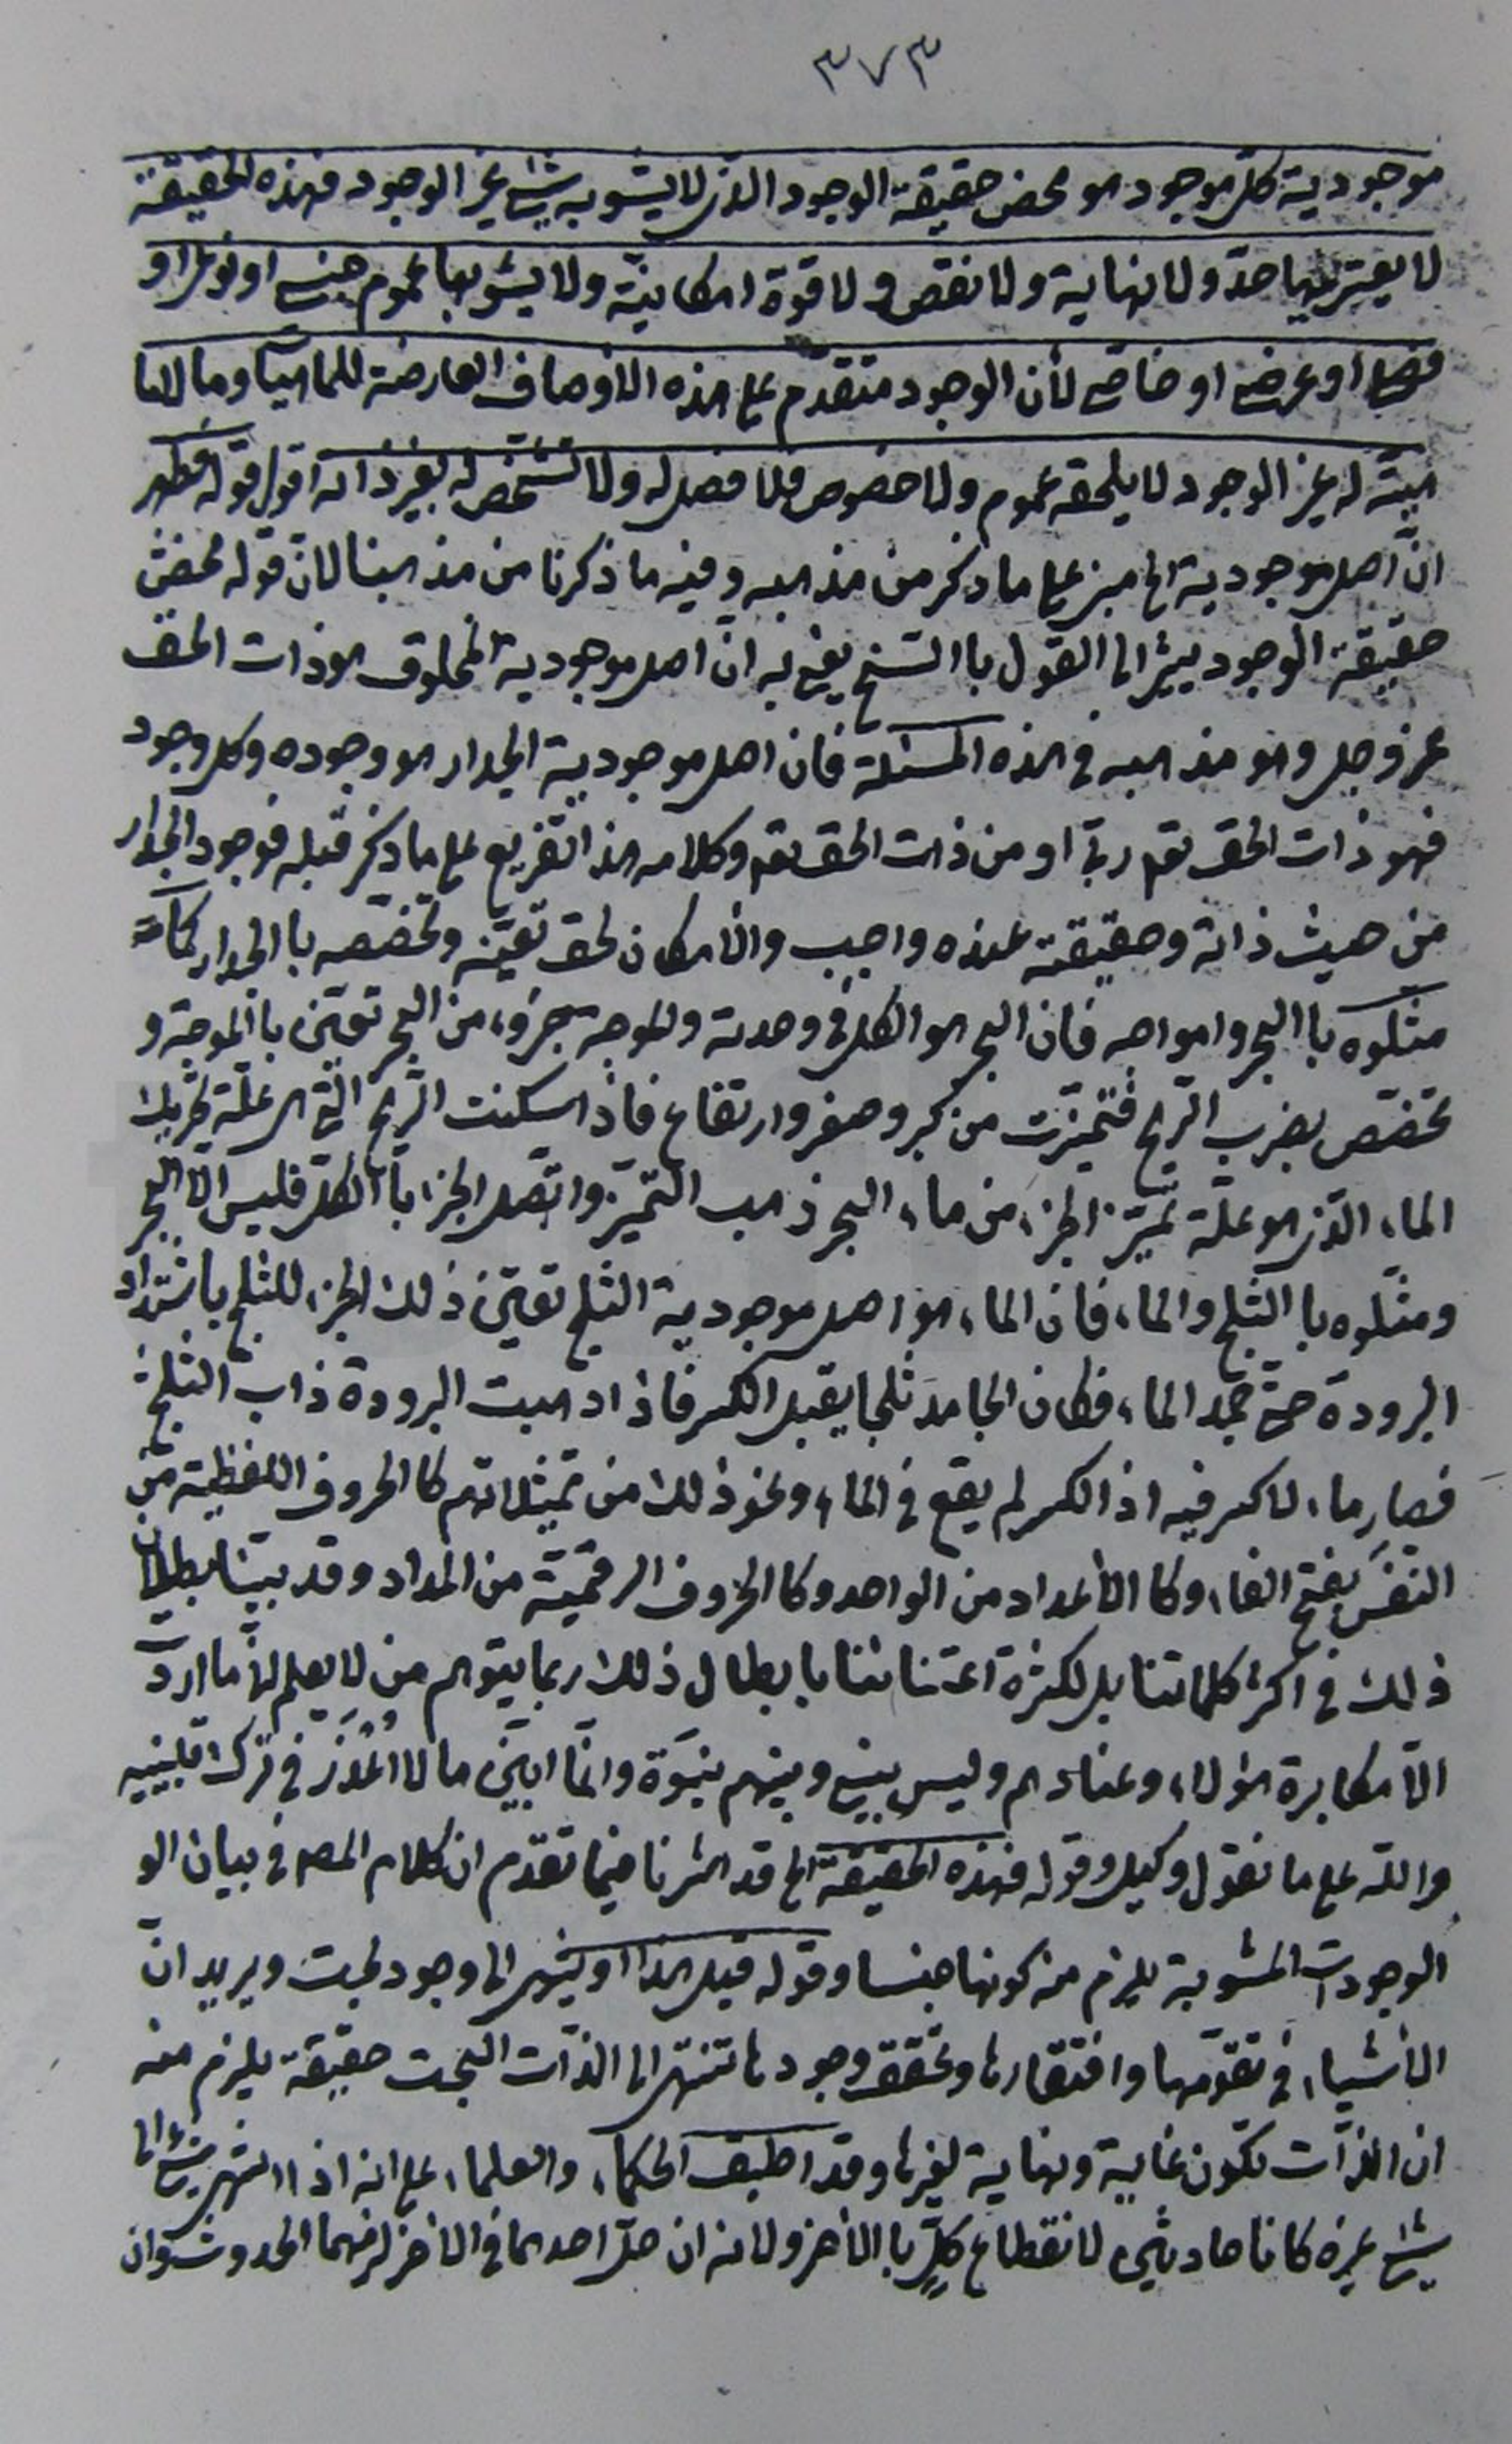 ٣٧٣
موجودية كل موجود هو محض حقيقة الوجود الذى لا يشوبه شئ غير الوجود فهذه الحقيقة
لا يعتريها حدّ ولا نهاية ولا نقص ولا قوة امكانيّة ولا يشوبها عموم جنسى او نوعى او
فصلى او عرضى او خاصى لأن الوجود متقدم على هذه الاوصاف العارضة للماهيات وما لا ما
هيّة له غير الوجود لا يلحقه عموم ولا خصوص فلا فصل له ولا تشخص له بغير ذاته اقول قوله فظهر
انّ اصل موجودية الخ مبنى على ما ذكر من مذهبه وفيه ما ذكرنا من مذهبنا لان قوله محض
حقيقة الوجود يشير الى القول باالسنخ يعنى به ان اصل موجودية المخلوق هو ذات الحق
عز وجل وهو مذهبه فى هذه المسئلة فان اصل موجودية الجدار هو وجوده وكل وجود
فهو ذات الحق تعـ ربّى او من ذات الحق تعـ وكلامه هذا تفريع على ما ذكر قبله فوجود الجدار
من حيث ذاته وحقيقته عنده واجب والامكان لحق تعيّنه وتخصّصه باالجدار كما
مثلوه باالبحر وامواجه فان البحر هو الكل فى وحدته والموجة جزء من البحر تعيّن باالموجة و
تخصّص بضرب الريح فتميّزت من كبر وصغر وارتفاع فاذا سكنت الريح التى هى علّة تحريك
الماء الذى هو علّة تميّز الجزء من ماء البحر ذهب التميّز واتصل الجزء باالكل فليس الا البحر
ومثّلوه باالثلج والماء فان الماء هو اصل موجودية الثلج تعيّن ذلك الجزء للثلج باشتداد
البرودة حتى جمد الماء فكان الجامد ثلجا يقبل الكسر فاذا ذهبت البرودة ذاب الثلج
فصار ماء لا كسر فيه اذ الكسر لم يقع فى الماء ونحو ذلك من تمثيلاتهم كا الحروف اللفظية من
النفَس بفتح الفاء وكا الأعداد من الواحد وكا الحروف الرقميّة من المداد وقد بيّنا بطلان
ذلك فى اكثر كلماتنا بل لكثرة اعتنائنا بابطال ذلك ربما يتوهم من لا يعلم انّا ما اردت
الّا مكابرة هؤلاء وعنادهم وليس بينى وبينهم نبوة وانّما ابيّن ما لا اُعْذَر فى ترك تبيينه
والله على ما نقول وكيل وقوله فهذه الحقيقة الخ قد اشرنا فيما تقدم ان كلام المصـ فى بيان الو
الوجودات المشوبة يلزم منه كونها جنسا وقوله قبل هذا او ينتهى الى وجود بحت ويريد انّ
الأشياء فى تقوّمها وافتقارها وتحقق وجودها تنتهى الى الذات البحت حقيقة يلزم منه
ان الذات تكون غاية ونهاية لغيرها وقد اطبق الحكماء والعلماء على انه اذا انتهى شئ الى
شئ غيره كانا حادثين لانقطاع كلٍّ باالأخر ولانه ان حلّ احدهما فى الأخر لزمهما الحدوث وان